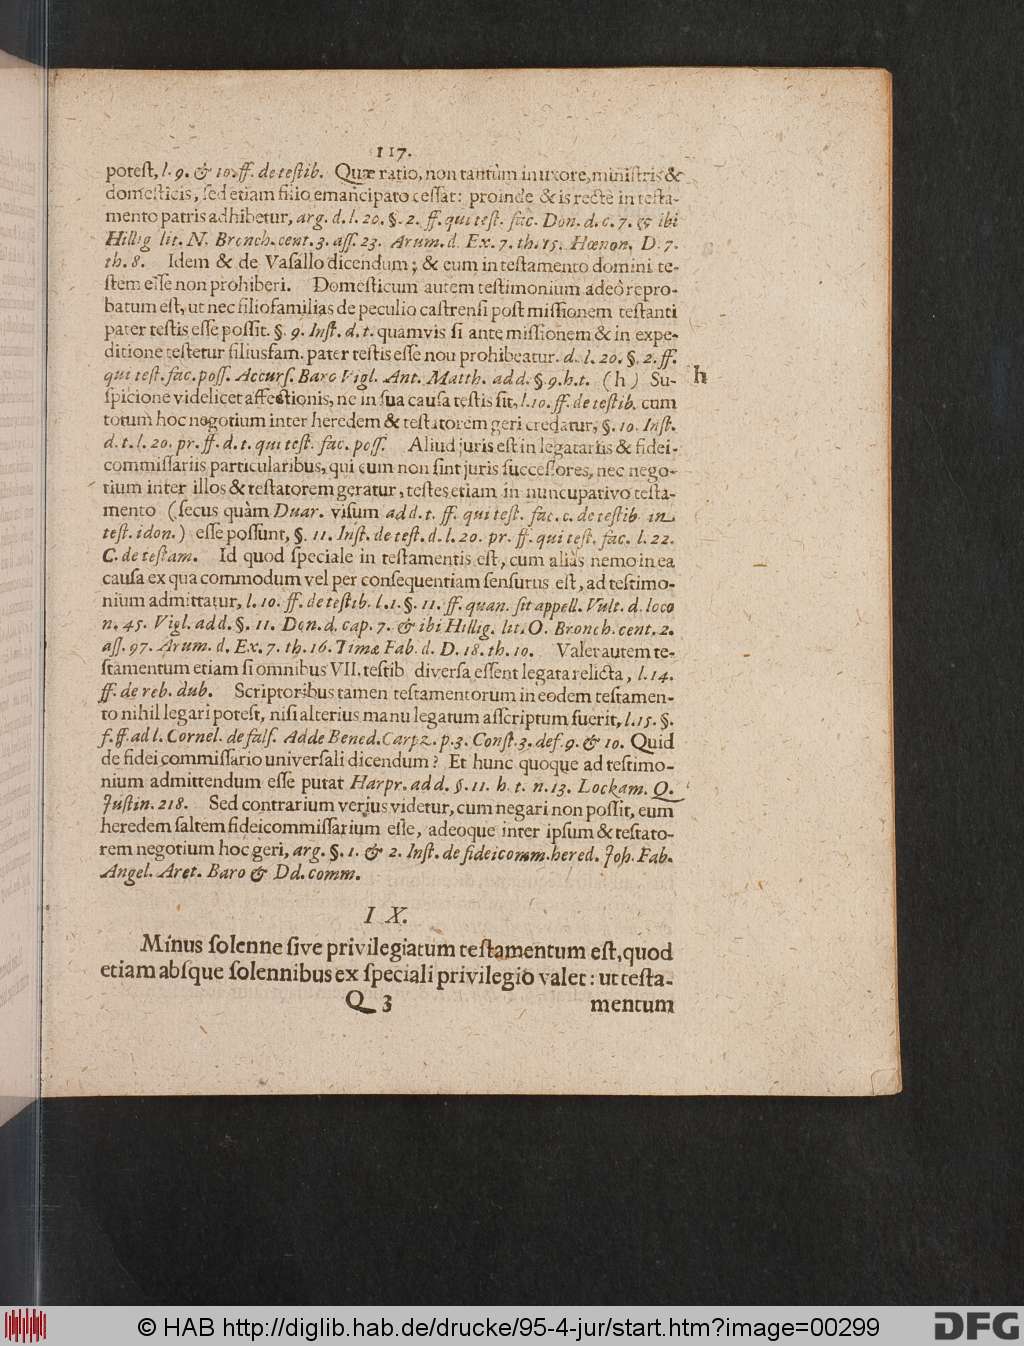 117.
poteſt, l. 9. & 10. ff. de teſtib. Quæ ratio, non tantùm in uxore, miniſtris &
domeſticis, ſed etiam filio emancipato ceſſat: proinde & is rectè in teſta-
mento patris adhibetur, arg. d. l. 20. §. 2. ff. qui teſt. fac. Don. d. c. 7. & ibi
Hillig lit. N. Bronch. cent. 3. aſſ. 23. Arum. d. Ex. 7. th. 15. Hœnon. D. 7.
th. 8. Idem & de Vaſallo dicendum; & eum in teſtamento domini te-
ſtem eſſe non prohiberi. Domeſticum autem teſtimonium adeò repro-
batum eſt, ut nec filiofamilias de peculio caſtrenſi poſt miſſionem teſtanti
pater teſtis eſſe poſſit. §. 9. Inſt. d. t. quamvis ſi ante miſſionem & in expe-
ditione teſtetur filiusfam. pater teſtis eſſe nou prohibeatur. d. l. 20. §. 2. ff.
qui teſt. fac. poſſ. Accurſ. Baro Vigl. Ant. Matth. ad d. §. 9. h. t. (h) Su- h
ſpicione videlicet affectionis, ne in ſua cauſa teſtis ſit, l. 10. ff. de teſtib. cum
totum hoc negotium inter heredem & teſtatorem geri credatur, §. 10. Inſt.
d. t. l. 20. pr. ff. d. t. qui teſt. fac. poſſ. Aliud juris eſt in legatariis & fidei-
commiſſariis particularibus, qui cum non ſint juris ſucceſſores, nec nego-
tium inter illos & teſtatorem geratur, teſtes etiam in nuncupativo teſta-
mento (ſecus quàm Duar. viſum ad d. t. ff. qui teſt. fac. c. de teſtib in
teſt. idon.) eſſe poſſunt, §. 11. Inſt. de teſt. d. l. 20. pr. ff. qui teſt. fac. l. 22.
C. de teſtam. Id quod ſpeciale in teſtamentis eſt, cum aliàs nemo in ea
cauſa ex qua commodum vel per conſequentiam ſenſurus eſt, ad teſtimo-
nium admittatur, l. 10. ff. de teſtib. l. 1. §. 11. ff. quan. ſit appell. Vult. d. loco
n. 45. Vigl. ad d. §. 11. Don. d. cap. 7. & ibi Hillig. lit. O. Bronch. cent. 2.
aſſ. 97. Arum. d. Ex. 7. th. 16. Timæ Fab. d. D. 18. th. 10. Valet autem te-
ſtamentum etiam ſi omnibus VII. teſtib diverſa eſſent legata relicta, l. 14.
ff. de reb. dub. Scriptoribus tamen teſtamentorum in eodem teſtamen-
to nihil legari poteſt, niſi alterius manu legatum aſſcriptum fuerit, l. 15. §.
f. ff. ad l. Cornel. de falſ. Adde Bened. Carpz. p. 3. Conſt. 3. def. 9. & 10. Quid
de fidei commiſſario univerſali dicendum? Et hunc quoque ad teſtimo-
nium admittendum eſſe putat Harpr. ad d. §. 11. h. t. n. 13. Lockam. Q.
Juſtin. 218. Sed contrarium verius videtur, cum negari non poſſit, eum
heredem ſaltem fideicommiſſarium eſſe, adeoque inter ipſum & teſtato-
rem negotium hoc geri, arg. §. 1. & 2. Inſt. de fideicomm. hered. Joh. Fab.
Angel. Aret. Baro & Dd. comm.
I X.
Minus ſolenne ſive privilegiatum teſtamentum eſt, quod
etiam absque ſolennibus ex ſpeciali privilegio valet: ut teſta-
Q 3 mentum
© HAB http://diglib.hab.de/drucke/95-4-jur/start.htm?image=00299
DFG